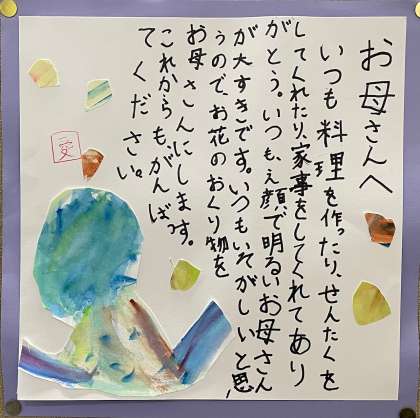 お母さんへ
いつも料理を作ったり、せんたくを
してくれたり、家事をしてくれてあり
がとう。いつも、え顔で明るいお母さん
が大すきです。いつもいそがしいと思
うので、お花のおくり物を
お母さんにします。
これからもがんばっ
てください。
愛